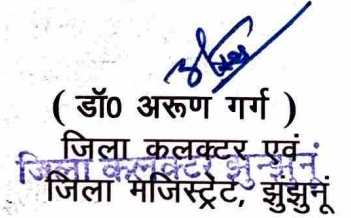 ( डॉ0 अरूण गर्ग )
जिला कलक्टर एवं
जिला कलक्टर झुन्झुनूं
जिला मजिस्ट्रेट, झुंझुनूं